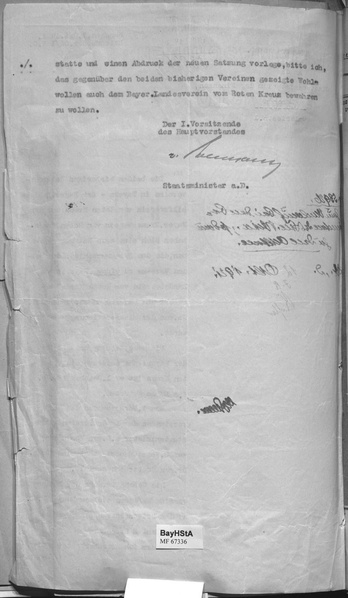 ./. statte und einen Abdruck der neuen Satzung vorlege, bitte ich,
das gegenüber den beiden bisherigen Vereinen gezeigte Wohl-
wollen auch dem Bayer.Landesverein vom Roten Kreuz bewahren
zu wollen.
Der I.Vorsitzende
des Hauptvorstandes
v.
Staatsminister a.D.
BayHStA
MF 67336